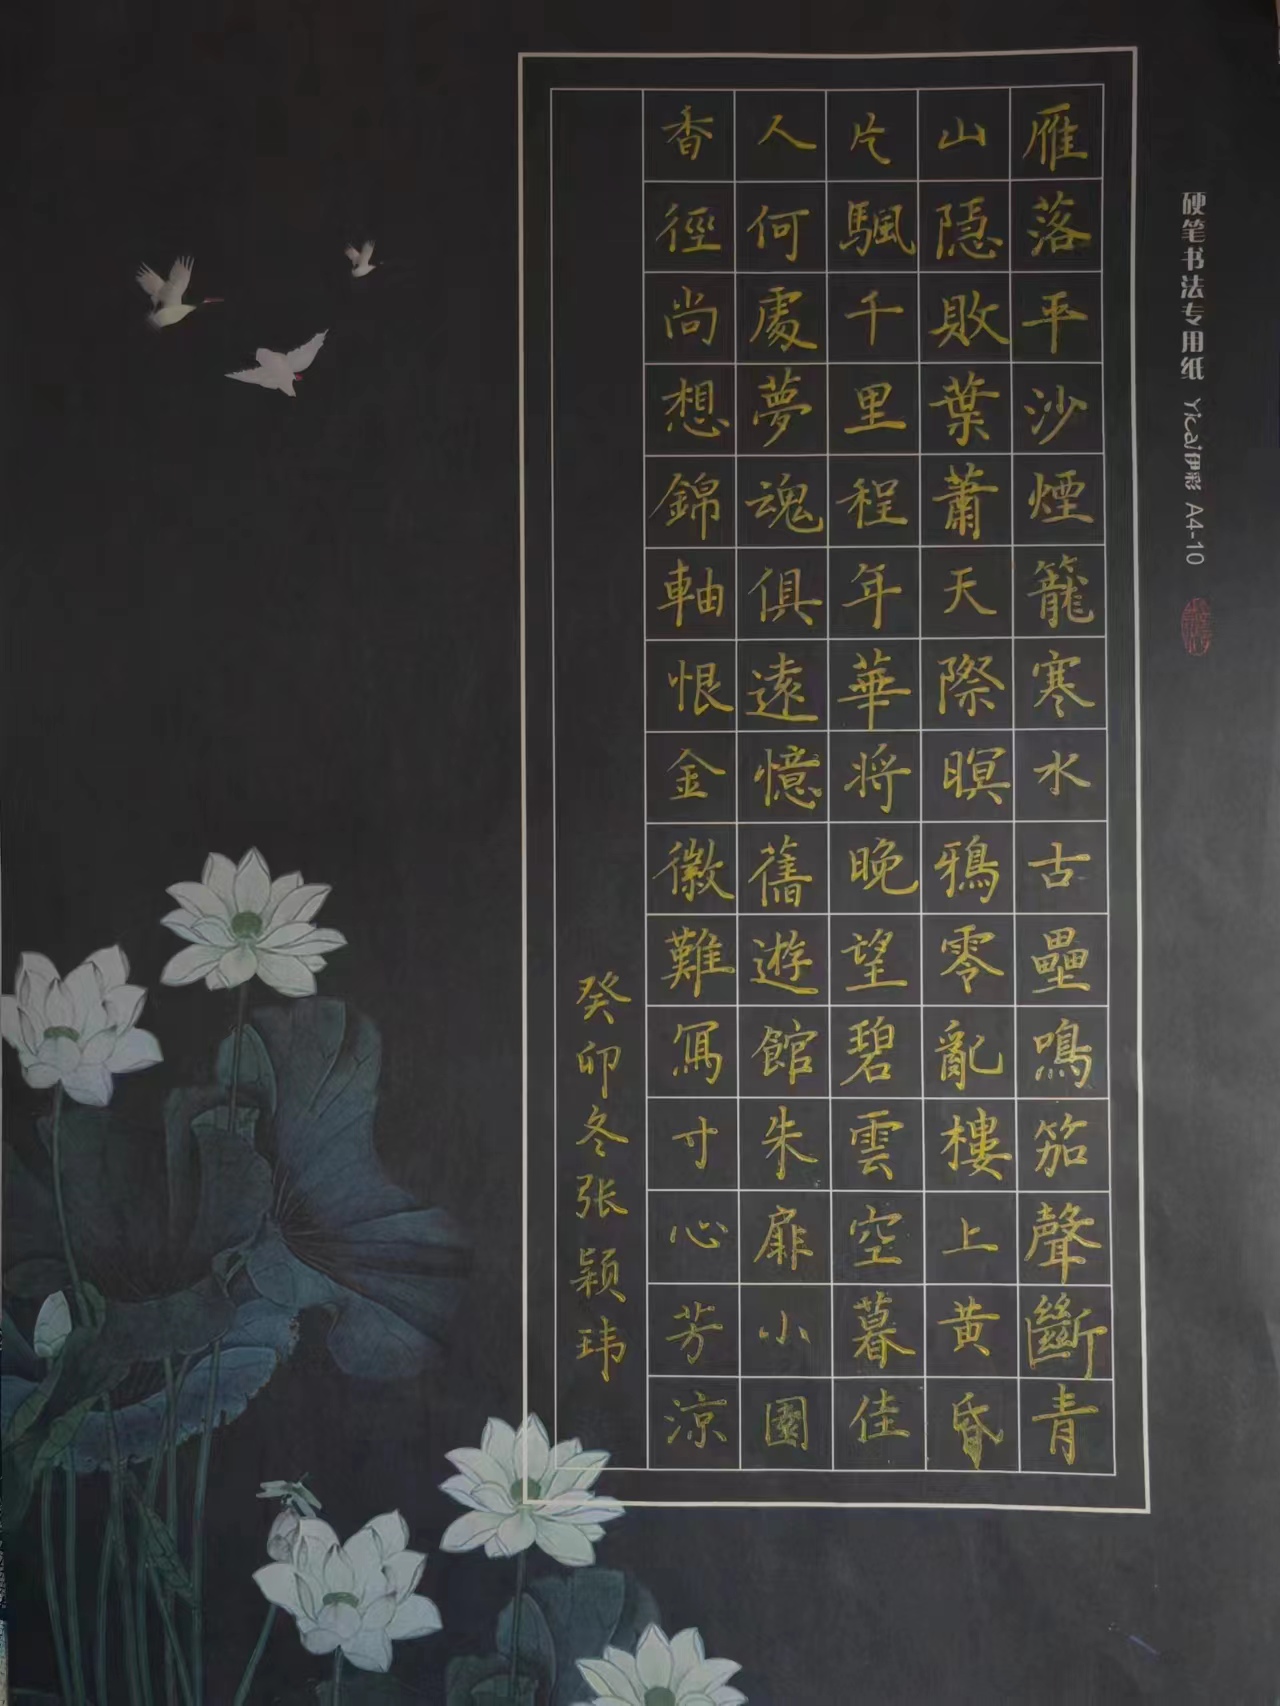 雁落平沙煙籠寒水古壘鳴笳聲斷青
山隱敗葉蕭天際暝鴉零亂樓上黄昏
片颿千里程年華将晚望碧雲空暮佳
人何處夢魂俱遠憶舊遊館朱扉小園
香徑尚想錦軸恨金徽難寫寸心芳涼
癸卯冬张颖玮
硬笔书法专用纸 Yicai伊彩 A4-10